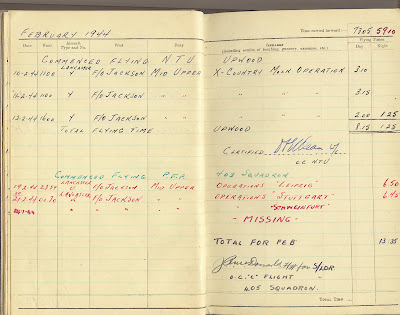 FEBRUARY 1944
Time carried forward:— 7305 5910
Date Hour Aircraft Type and No. Pilot Duty
REMARKS (including results of bombing, gunnery, exercises, etc.) Flying Times
Day Night
COMMENCED FLYING N.T.U. UPWOOD
10-2-44 1100 LANCASTER Y F/O JACKSON MID UPPER X-COUNTRY MOON OPERATION 3.10
1100 Y F/O JACKSON " " " " " 3.15
1600 Y F/O JACKSON " " " " " 2.00 1.25
TOTAL FLYING TIME UPWOOD 8.15 1.25
CERTIFIED
O.C. NTU
COMMENCED FLYING P.F.F. 405 SQUADRON
19-2-44 LANCASTER F/O JACKSON MID UPPER OPERATIONS "LEIPZIG" 6.50
LANCASTER F/O JACKSON " " OPERATIONS "STUTTGART" 6.45
" " " " "SCHWEINFURT"
- MISSING -
TOTAL FOR FEB 13.35
for S/LDR
O.C. "C" FLIGHT
405 SQUADRON.
Total Time